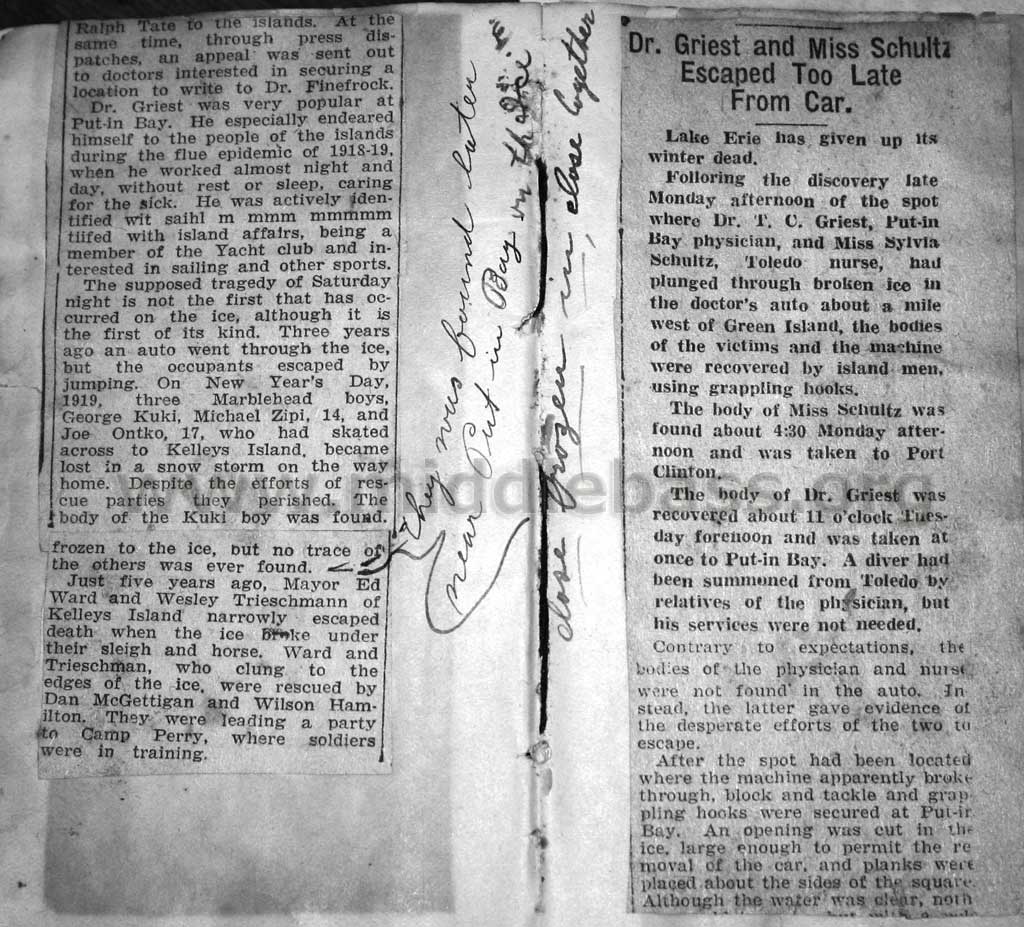 Ralph Tate to the islands. At the
same time, through press dis-
patches, an appeal was sent out
to doctors interested in securing a
location to write to Dr. Finefrock.
Dr. Griest was very popular at
Put-in Bay. He especially endeared
himself to the people of the islands
during the flue epidemic of 1918-19,
when he worked almost night and
day, without rest or sleep, caring
for the sick. He was actively iden-
tified wit saihl m mmm mmmmm
tiifed with island affairs, being a
member of the Yacht club and in-
terested in sailing and other sports.
The supposed tragedy of Saturday
night is not the first that has oc-
curred on the ice, although it is
the first of its kind. Three years
ago an auto went through the ice,
but the occupants escaped by
jumping. On New Year's Day,
1919, three Marblehead boys,
George Kuki, Michael Zipi, 14, and
Joe Ontko, 17, who had skated
across to Kelleys Island, became
lost in a snow storm on the way
home. Despite the efforts of res-
cue parties they perished. The
body of the Kuki boy was found.
frozen to the ice, but no trace of
the others was ever found.
Just five years ago, Mayor Ed
Ward and Wesley Trieschmann of
Kelleys Island narrowly escaped
death when the ice broke under
their sleigh and horse. Ward and
Trieschman, who clung to the
edges of the ice, were rescued by
Dan McGettigan and Wilson Ham-
ilton. They were leading a party
to Camp Perry, where soldiers
were in training.
They was found later
near Put in Bay in the Ice
close frozen in, close together
Dr. Griest and Miss Schultz
Escaped Too Late
From Car.
Lake Erie has given up its
winter dead.
Folloring the discovery late
Monday afternoon of the spot
where Dr. T. C. Griest, Put-in
Bay physician, and Miss Sylvia
Schultz, Toledo nurse, had
plunged through broken ice in
the doctor's auto about a mile
west of Green Island, the bodies
of the victims and the machine
were recovered by island men,
using grappling hooks.
The body of Miss Schultz was
found about 4:30 Monday after-
noon and was taken to Port
Clinton.
The body of Dr. Griest was
recovered about 11 o'clock Tues-
day forenoon and was taken at
once to Put-in Bay. A diver had
been summoned from Toledo by
relatives of the physician, but
his services were not needed.
Contrary to expectations, the
bodies of the physician and nurse
were not found in the auto. In
stead, the latter gave evidence of
the desperate efforts of the two to
escape.
After the spot had been located
where the machine apparently broke
through, block and tackle and grap
pling hooks were secured at Put-in
Bay. An opening was cut in the
ice, large enough to permit the re
moval of the car, and planks were
placed about the sides of the square.
Although the water was clear, noth